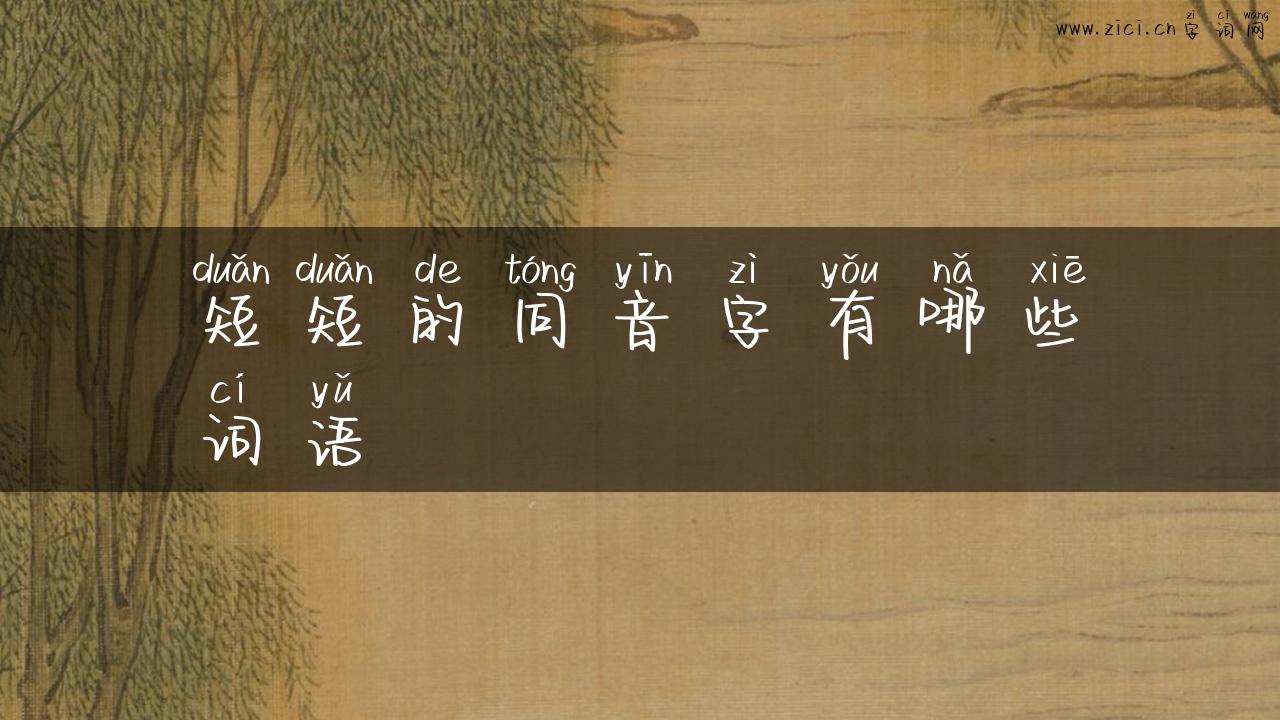 zì cí wǎng
www.zici.cn字词网
duǎn duǎn de tóng yīn zì yǒu nǎ xiē
短短的同音字有哪些
cí yǔ
词语